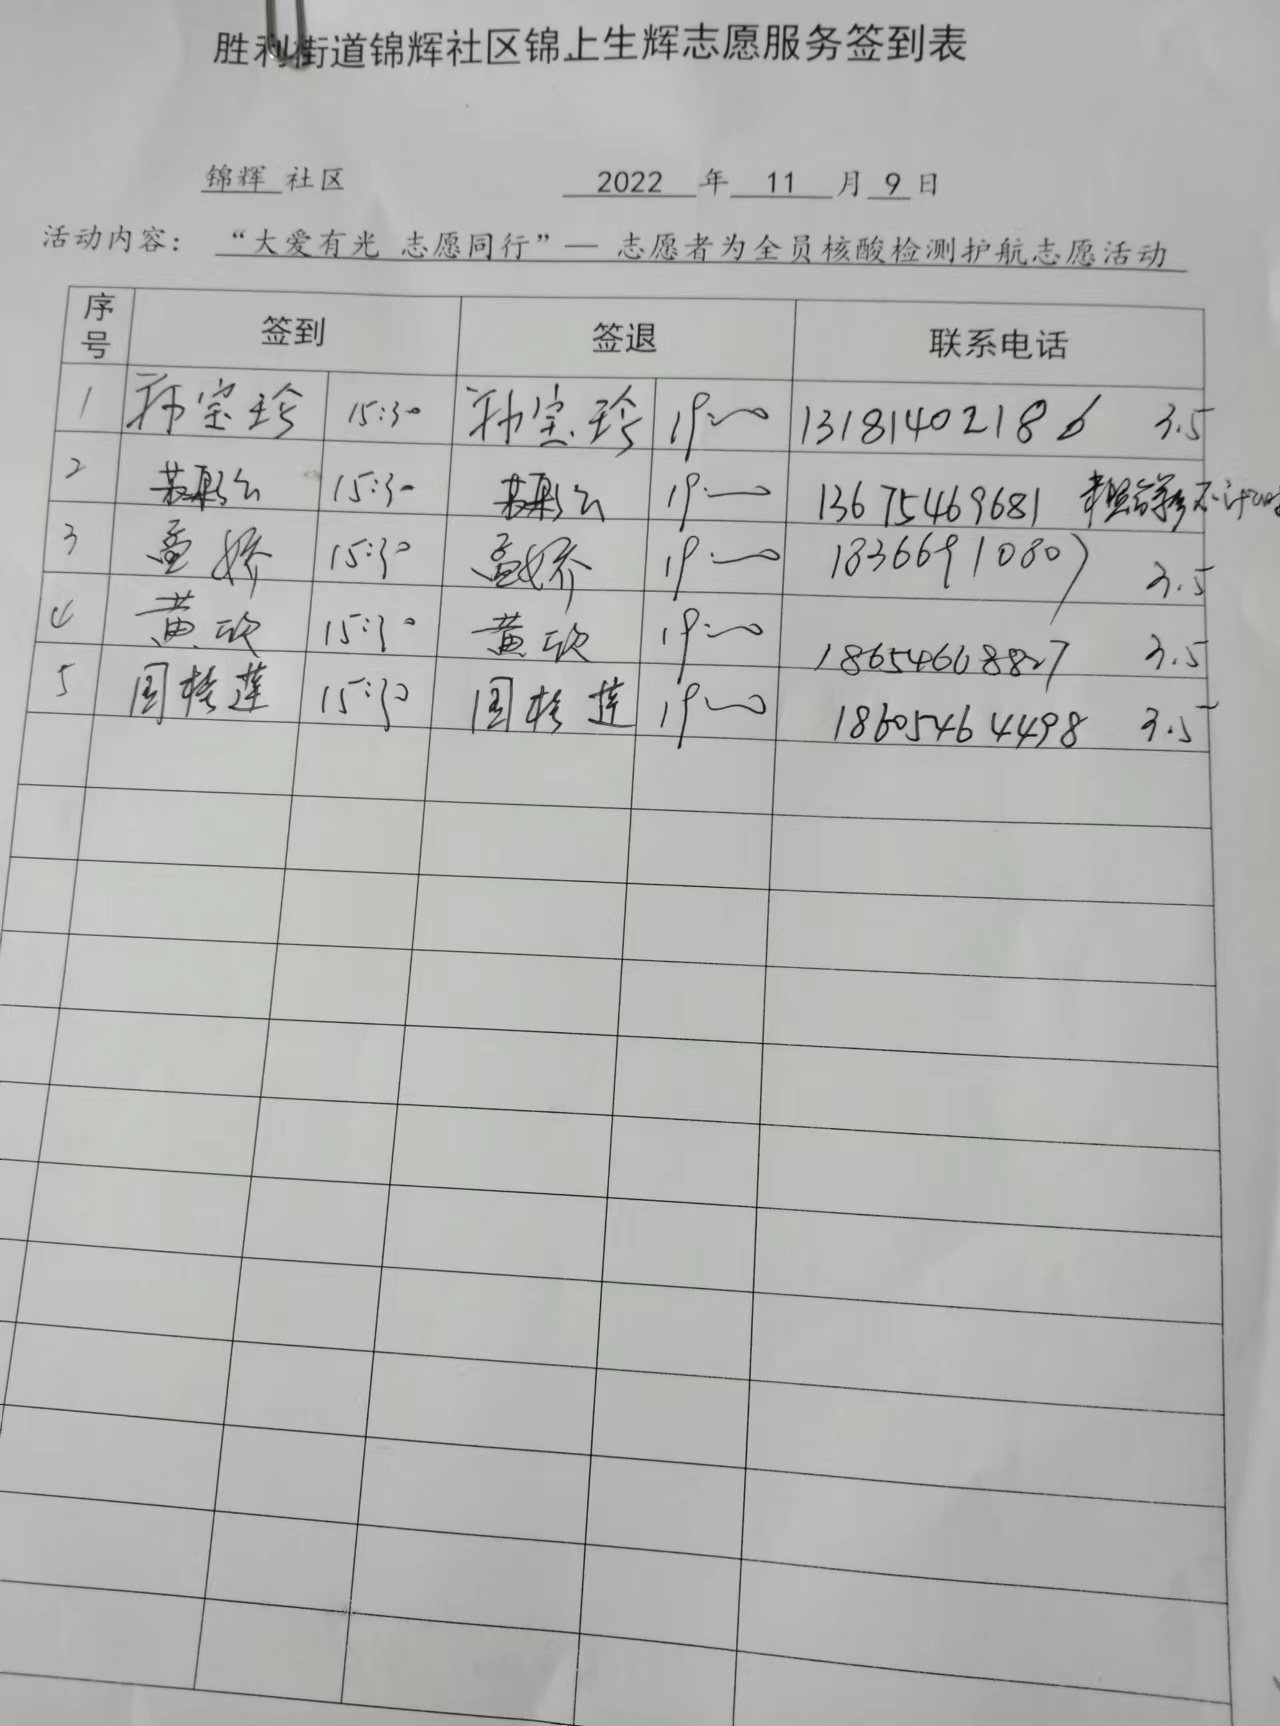 胜利街道锦辉社区锦上生辉志愿服务签到表
锦辉 社区 2022 年 11 月 9 日
活动内容： “大爱有光 志愿同行”— 志愿者为全员核酸检测护航志愿活动
序号 签到 签退 联系电话
1 孙宝珍 15:30 孙宝珍 19:00 13181402186 3.5
2 15:30 19:00 13675469681
3 孟娇 15:30 孟娇 19:00 18366910807 3.5
4 黄欣 15:30 黄欣 19:00 18654608827 3.5
5 国桂莲 15:30 国桂莲 19:00 18605464498 3.5